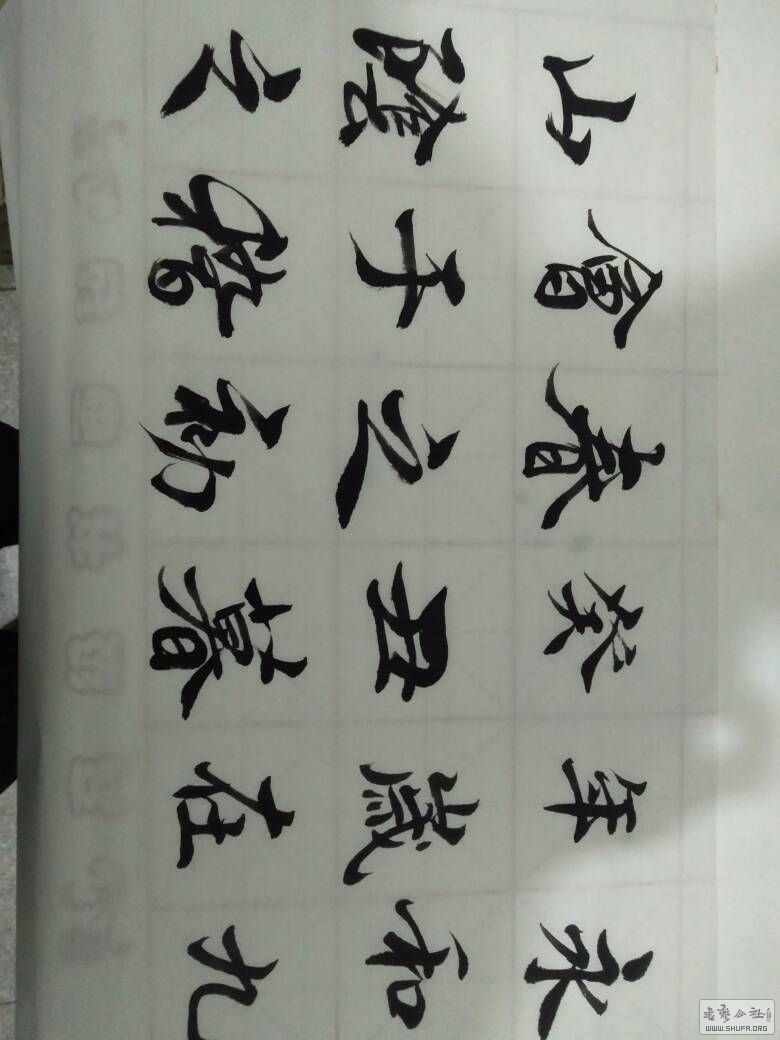 永和九
年歲在
癸丑暮
春之初
會于稽
山陰之
书艺公社
WWW.SHUFA.ORG